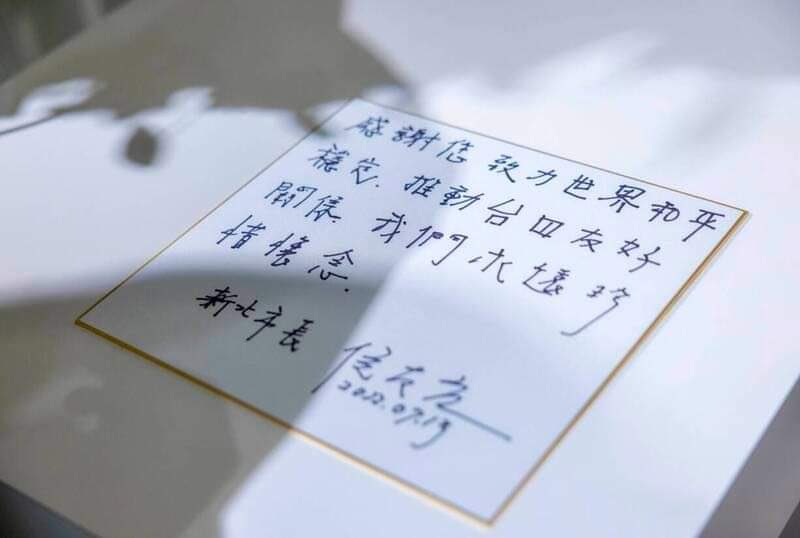 感謝您致力世界和平
穩定.推動台日友好
關係.我們永遠珍
惜懷念.
新北市長
侯友宜
2022.07.19